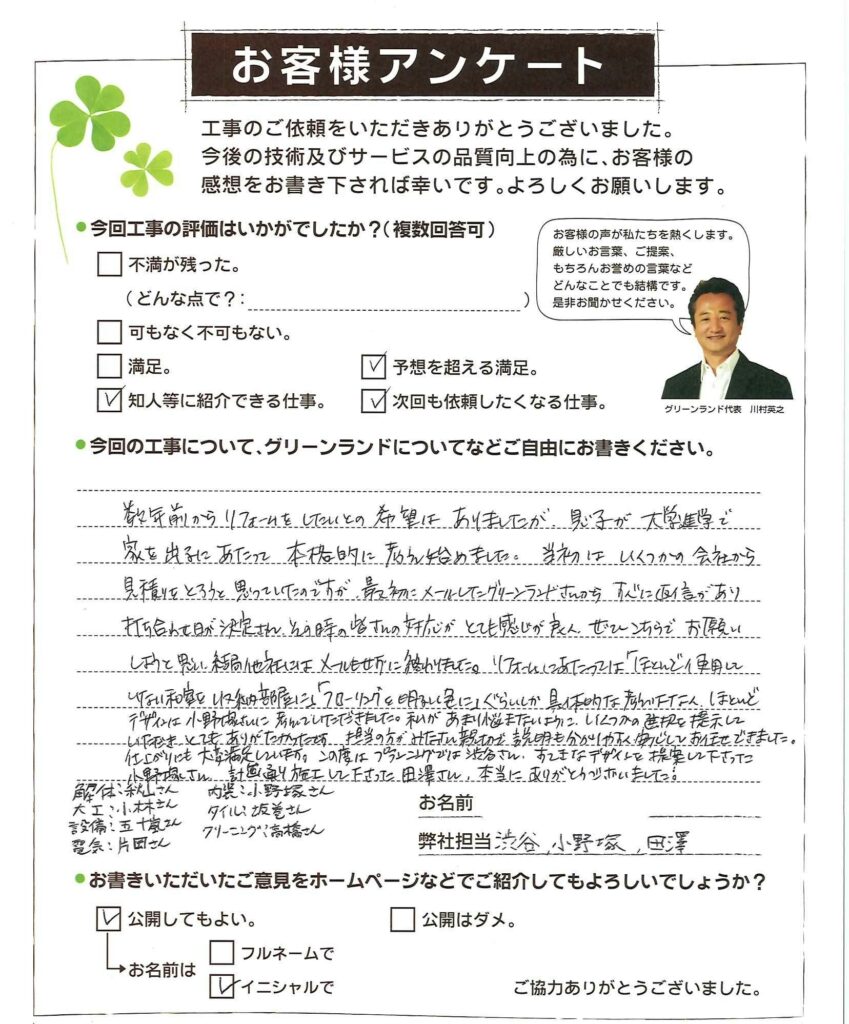 お客様アンケート
工事のご依頼をいただきありがとうございました。
今後の技術及びサービスの品質向上の為に、お客様の
感想をお書き下されば幸いです。よろしくお願いします。
今回工事の評価はいかがでしたか？（複数回答可）
不満が残った。
（どんな点で？：　　　）
可もなく不可もない。
満足。
予想を超える満足。
知人等に紹介できる仕事。
次回も依頼したくなる仕事。
お客様の声が私たちを熱くします。
厳しいお言葉、ご提案、
もちろんお誉めの言葉など
どんなことでも結構です。
是非お聞かせください。
グリーンランド代表　川村英之
今回の工事について、グリーンランドについてなどご自由にお書きください。
数年前からリフォームをしたいとの希望はありましたが、息子が大学進学で
家を出るにあたって本格的に考え始めました。当初はいくつかの会社から
見積りをとろうと思っていたのですが、最初にメールしたグリーンランドさんからすぐに返信があり
打ち合わせ日が決定され、その時の皆さんの対応がとても感じが良く、ぜひこちらでお願い
しようと思い、結局他社にはメールもせずに終わりました。リフォームにあたっては「ほとんど使用して
いない和室をLDK」「フローリングを明るい色に」ぐらいしか具体的な考えはなく、ほとんど
デザインは小野塚さんに考えていただきました。私があまり悩まないように、いくつかの選択を提示して
いただき、とてもありがたかったです。担当の方がみなさん親切で説明も分かりやすく安心してお任せできました。
仕上がりにも大変満足しています。この度はプランニングでは渋谷さん、すてきなデザインを提案して下さった
小野塚さん、計画通り施工して下さった田澤さん、本当にありがとうございました！
解体：秋山さん
大工：小林さん
設備：五十嵐さん
電気：片岡さん
内装：小野塚さん
タイル：坂巻さん
クリーニング：高橋さん
お名前
弊社担当 渋谷、小野塚、田澤
お書きいただいたご意見をホームページなどでご紹介してもよろしいでしょうか？
公開してもよい。
公開はダメ。
お名前は
フルネームで
イニシャルで
ご協力ありがとうございました。